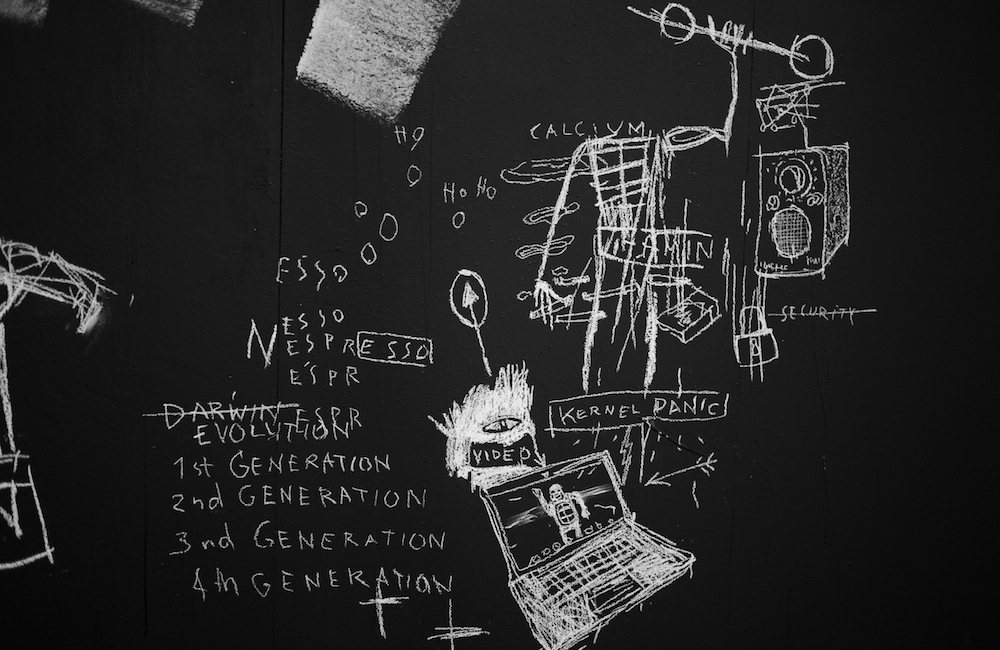 HO
HO HO
CALCIUM
VITAMIN
ESSO
ESSO
NESPRESSO
ESPR
SECURITY
DARWIN ESPR
EVOLUTION
KERNEL PANIC
VIDEO
1st GENERATION
2nd GENERATION
3nd GENERATION
4th GENERATION